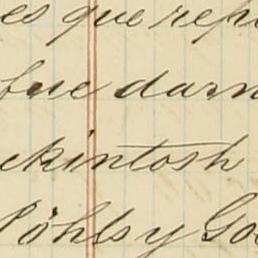 es que rep
fue darn
ckintosh
Pöhls y Go